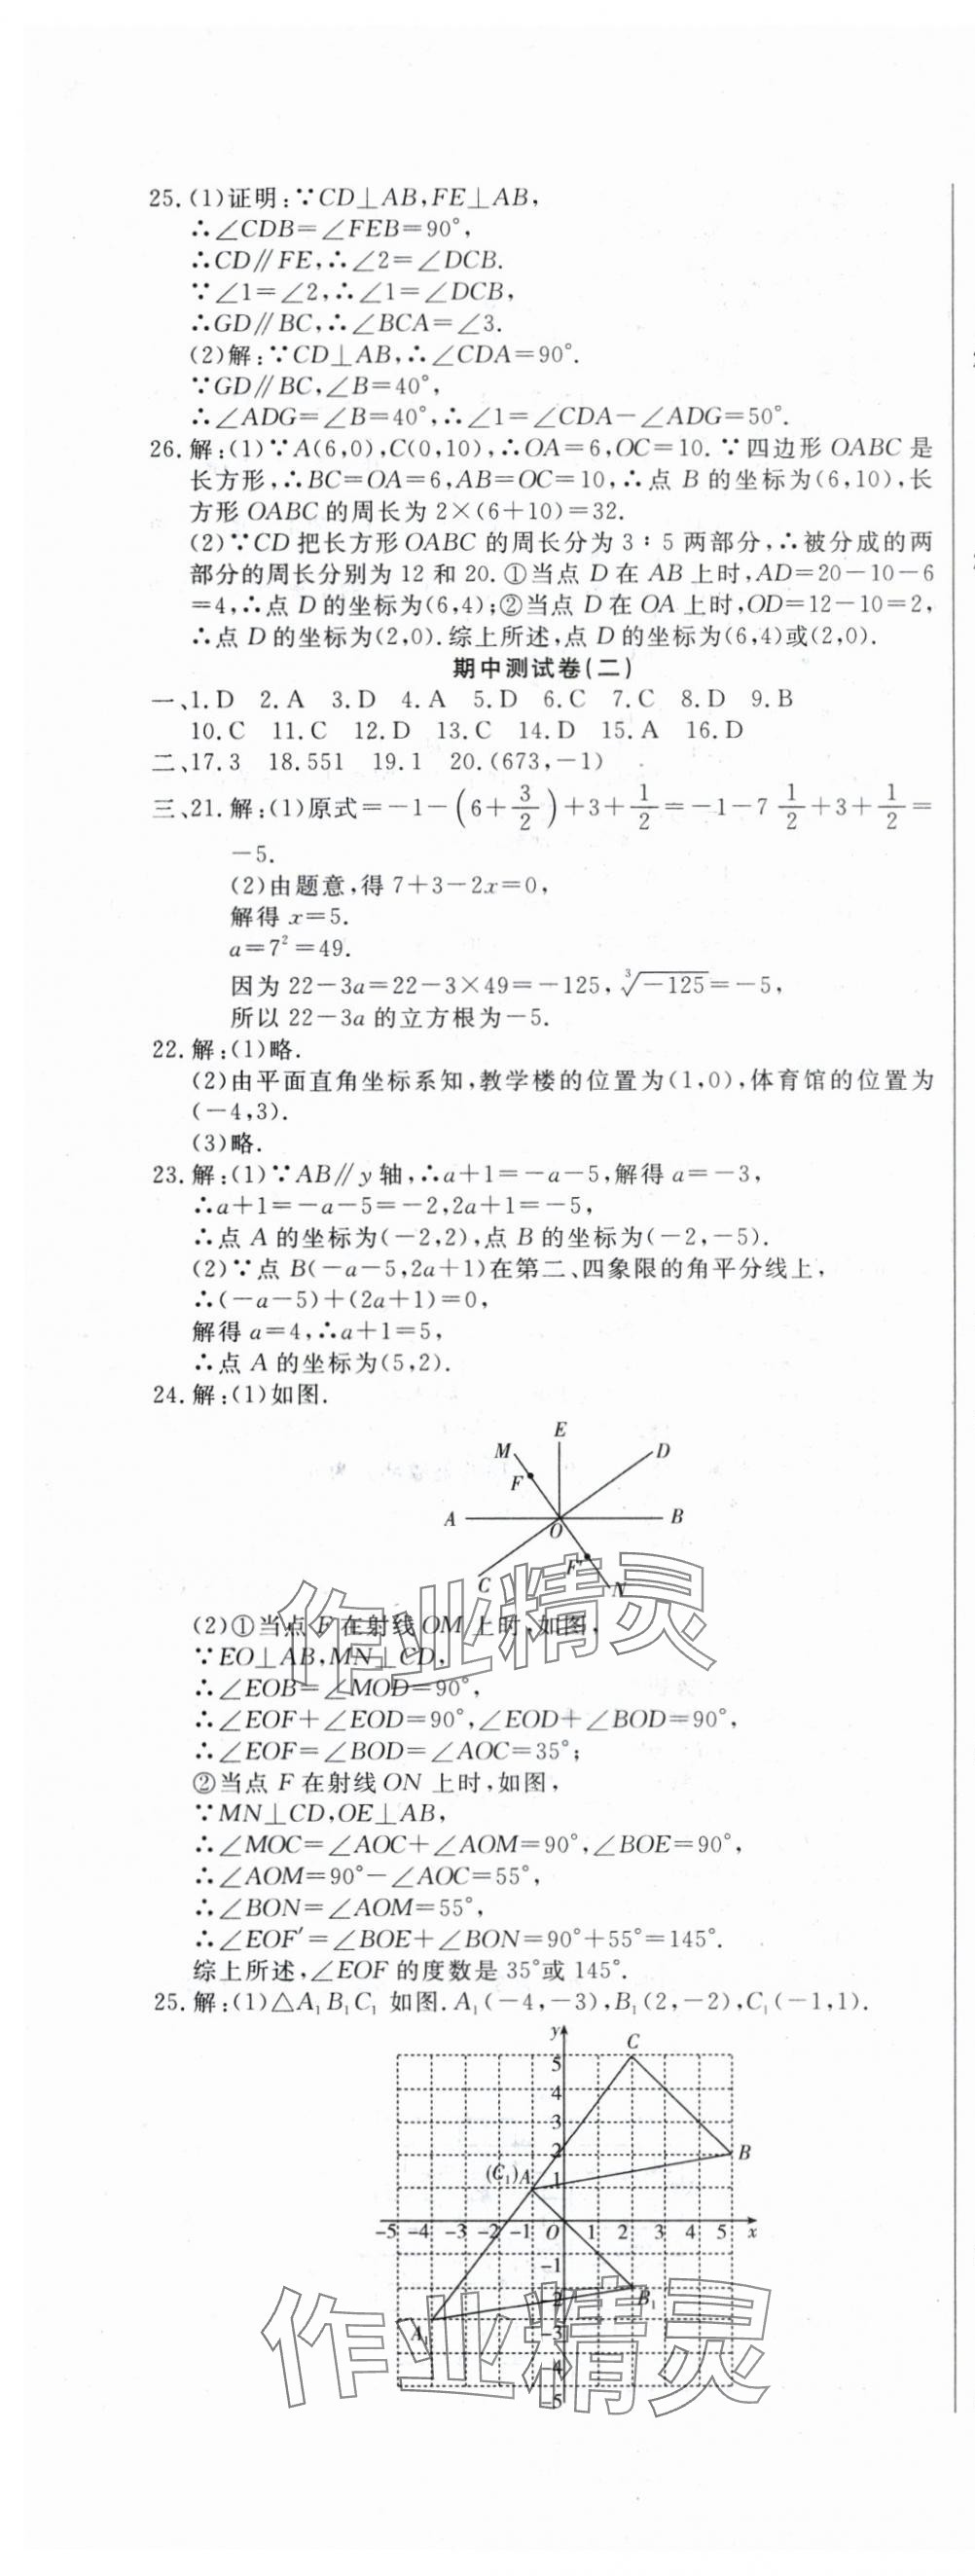 25.(1)证明:∵CD⊥AB,FE⊥AB,
∴∠CDB=∠FEB=90°,
∴CD∥FE,∴∠2=∠DCB.
∵∠1=∠2,∴∠1=∠DCB,
∴GD∥BC,∴∠BCA=∠3.
(2)解:∵CD⊥AB,∴∠CDA=90°.
∵GD∥BC,∠B=40°,
∴∠ADG=∠B=40°,∴∠1=∠CDA-∠ADG=50°.
26.解:(1)∵A(6,0),C(0,10),∴OA=6,OC=10.∵四边形OABC是
长方形,∴BC=OA=6,AB=OC=10,∴点B的坐标为(6,10),长
方形OABC的周长为2×(6+10)=32.
(2)∵CD把长方形OABC的周长分为3∶5两部分,∴被分成的两
部分的周长分别为12和20.①当点D在AB上时,AD=20-10-6
=4,∴点D的坐标为(6,4);②当点D在OA上时,OD=12-10=2,
∴点D的坐标为(2,0).综上所述,点D的坐标为(6,4)或(2,0).
期中测试卷(二)
一、1.D 2.A 3.D 4.A 5.D 6.C 7.C 8.D 9.B
10.C 11.C 12.D 13.C 14.D 15.A 16.D
二、17.3 18.551 19.1 20.(673,-1)
三、21.解:(1)原式=-1-(6+3/2)+3+1/2=-1-7 1/2+3+1/2=
-5.
(2)由题意,得7+3-2x=0,
解得x=5.
a=7²=49.
因为22-3a=22-3×49=-125,∛-125=-5,
所以22-3a的立方根为-5.
22.解:(1)略.
(2)由平面直角坐标系知,教学楼的位置为(1,0),体育馆的位置为
(-4,3).
(3)略.
23.解:(1)∵AB∥y轴,∴a+1=-a-5,解得a=-3,
∴a+1=-a-5=-2,2a+1=-5,
∴点A的坐标为(-2,2),点B的坐标为(-2,-5).
(2)∵点B(-a-5,2a+1)在第二、四象限的角平分线上,
∴(-a-5)+(2a+1)=0,
解得a=4,∴a+1=5,
∴点A的坐标为(5,2).
24.解:(1)如图.
E
M D
F
A O B
C F′ N
(2)①当点F在射线OM上时,如图,
∵EO⊥AB,MN⊥CD,
∴∠EOB=∠MOD=90°,
∴∠EOF+∠EOD=90°,∠EOD+∠BOD=90°,
∴∠EOF=∠BOD=∠AOC=35°;
②当点F在射线ON上时,如图,
∵MN⊥CD,OE⊥AB,
∴∠MOC=∠AOC+∠AOM=90°,∠BOE=90°,
∴∠AOM=90°-∠AOC=55°,
∴∠BON=∠AOM=55°,
∴∠EOF′=∠BOE+∠BON=90°+55°=145°.
综上所述,∠EOF的度数是35°或145°.
25.解:(1)△A₁B₁C₁如图.A₁(-4,-3),B₁(2,-2),C₁(-1,1).
y
C
5
4
3
2 B
(C₁)A 1
-5 -4 -3 -2 -1 O 1 2 3 4 5 x
-1
2 B₁
A₁ -3
4
-5
作业精灵
作业精灵